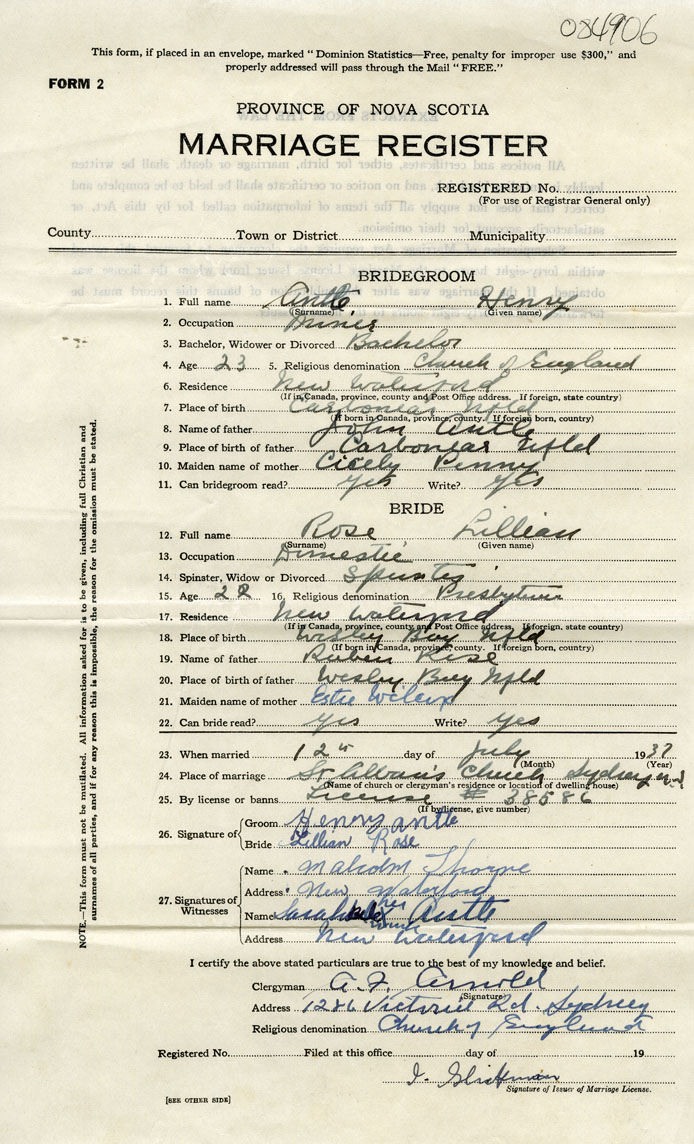 084906
This form, if placed in an envelope, marked "Dominion Statistics—Free, penalty for improper use $300," and
properly addressed will pass through the Mail "FREE."
FORM 2
PROVINCE OF NOVA SCOTIA
MARRIAGE REGISTER
REGISTERED No.
(For use of Registrar General only)
County Town or District Municipality
BRIDEGROOM
1. Full name Antle Henry
(Surname) (Given name)
2. Occupation Miner
3. Bachelor, Widower or Divorced Bachelor
4. Age 23 5. Religious denomination Church of England
6. Residence New Waterford
(If in Canada, province, county and Post Office address. If foreign, state country)
7. Place of birth Carbonear Nfld
(If born in Canada, province, county. If foreign born, country)
8. Name of father John Antle
9. Place of birth of father Carbonear Nfld
10. Maiden name of mother Cicely Penny
11. Can bridegroom read? Yes Write? Yes
BRIDE
12. Full name Rose Lillian
(Surname) (Given name)
13. Occupation Domestic
14. Spinster, Widow or Divorced Spinster
15. Age 22 16. Religious denomination Presbyterian
17. Residence New Waterford
(If in Canada, province, county and Post Office address. If foreign, state country)
18. Place of birth Wesley Bay Nfld
(If born in Canada, province, county. If foreign born, country)
19. Name of father Ruben Rose
20. Place of birth of father Wesley Bay Nfld
21. Maiden name of mother
22. Can bride read? Yes Write? Yes
23. When married 12th day of July 1937
(Month) (Year)
24. Place of marriage St Alban's Church Sydney N.S
(Name of church or clergyman's residence or location of dwelling house)
25. By license or banns License # 38586
(If by license, give number)
26. Signature of
Groom Henry Antle
Bride Lillian Rose
27. Signatures of Witnesses
Name Malcolm Thorne
Address New Waterford
Name Sarah her Antle
mark
Address New Waterford
I certify the above stated particulars are true to the best of my knowledge and belief.
Clergyman A. F. Arnold
(Signature)
Address 1286 Victoria Rd. Sydney
Religious denomination Church of England
Registered No. Filed at this office day of 19
I.
Signature of Issuer of Marriage License.
[SEE OTHER SIDE]
NOTE.—This form must not be mutilated. All information asked for is to be given, including full Christian and
surnames of all parties, and if for any reason this is impossible, the reason for the omission must be stated.